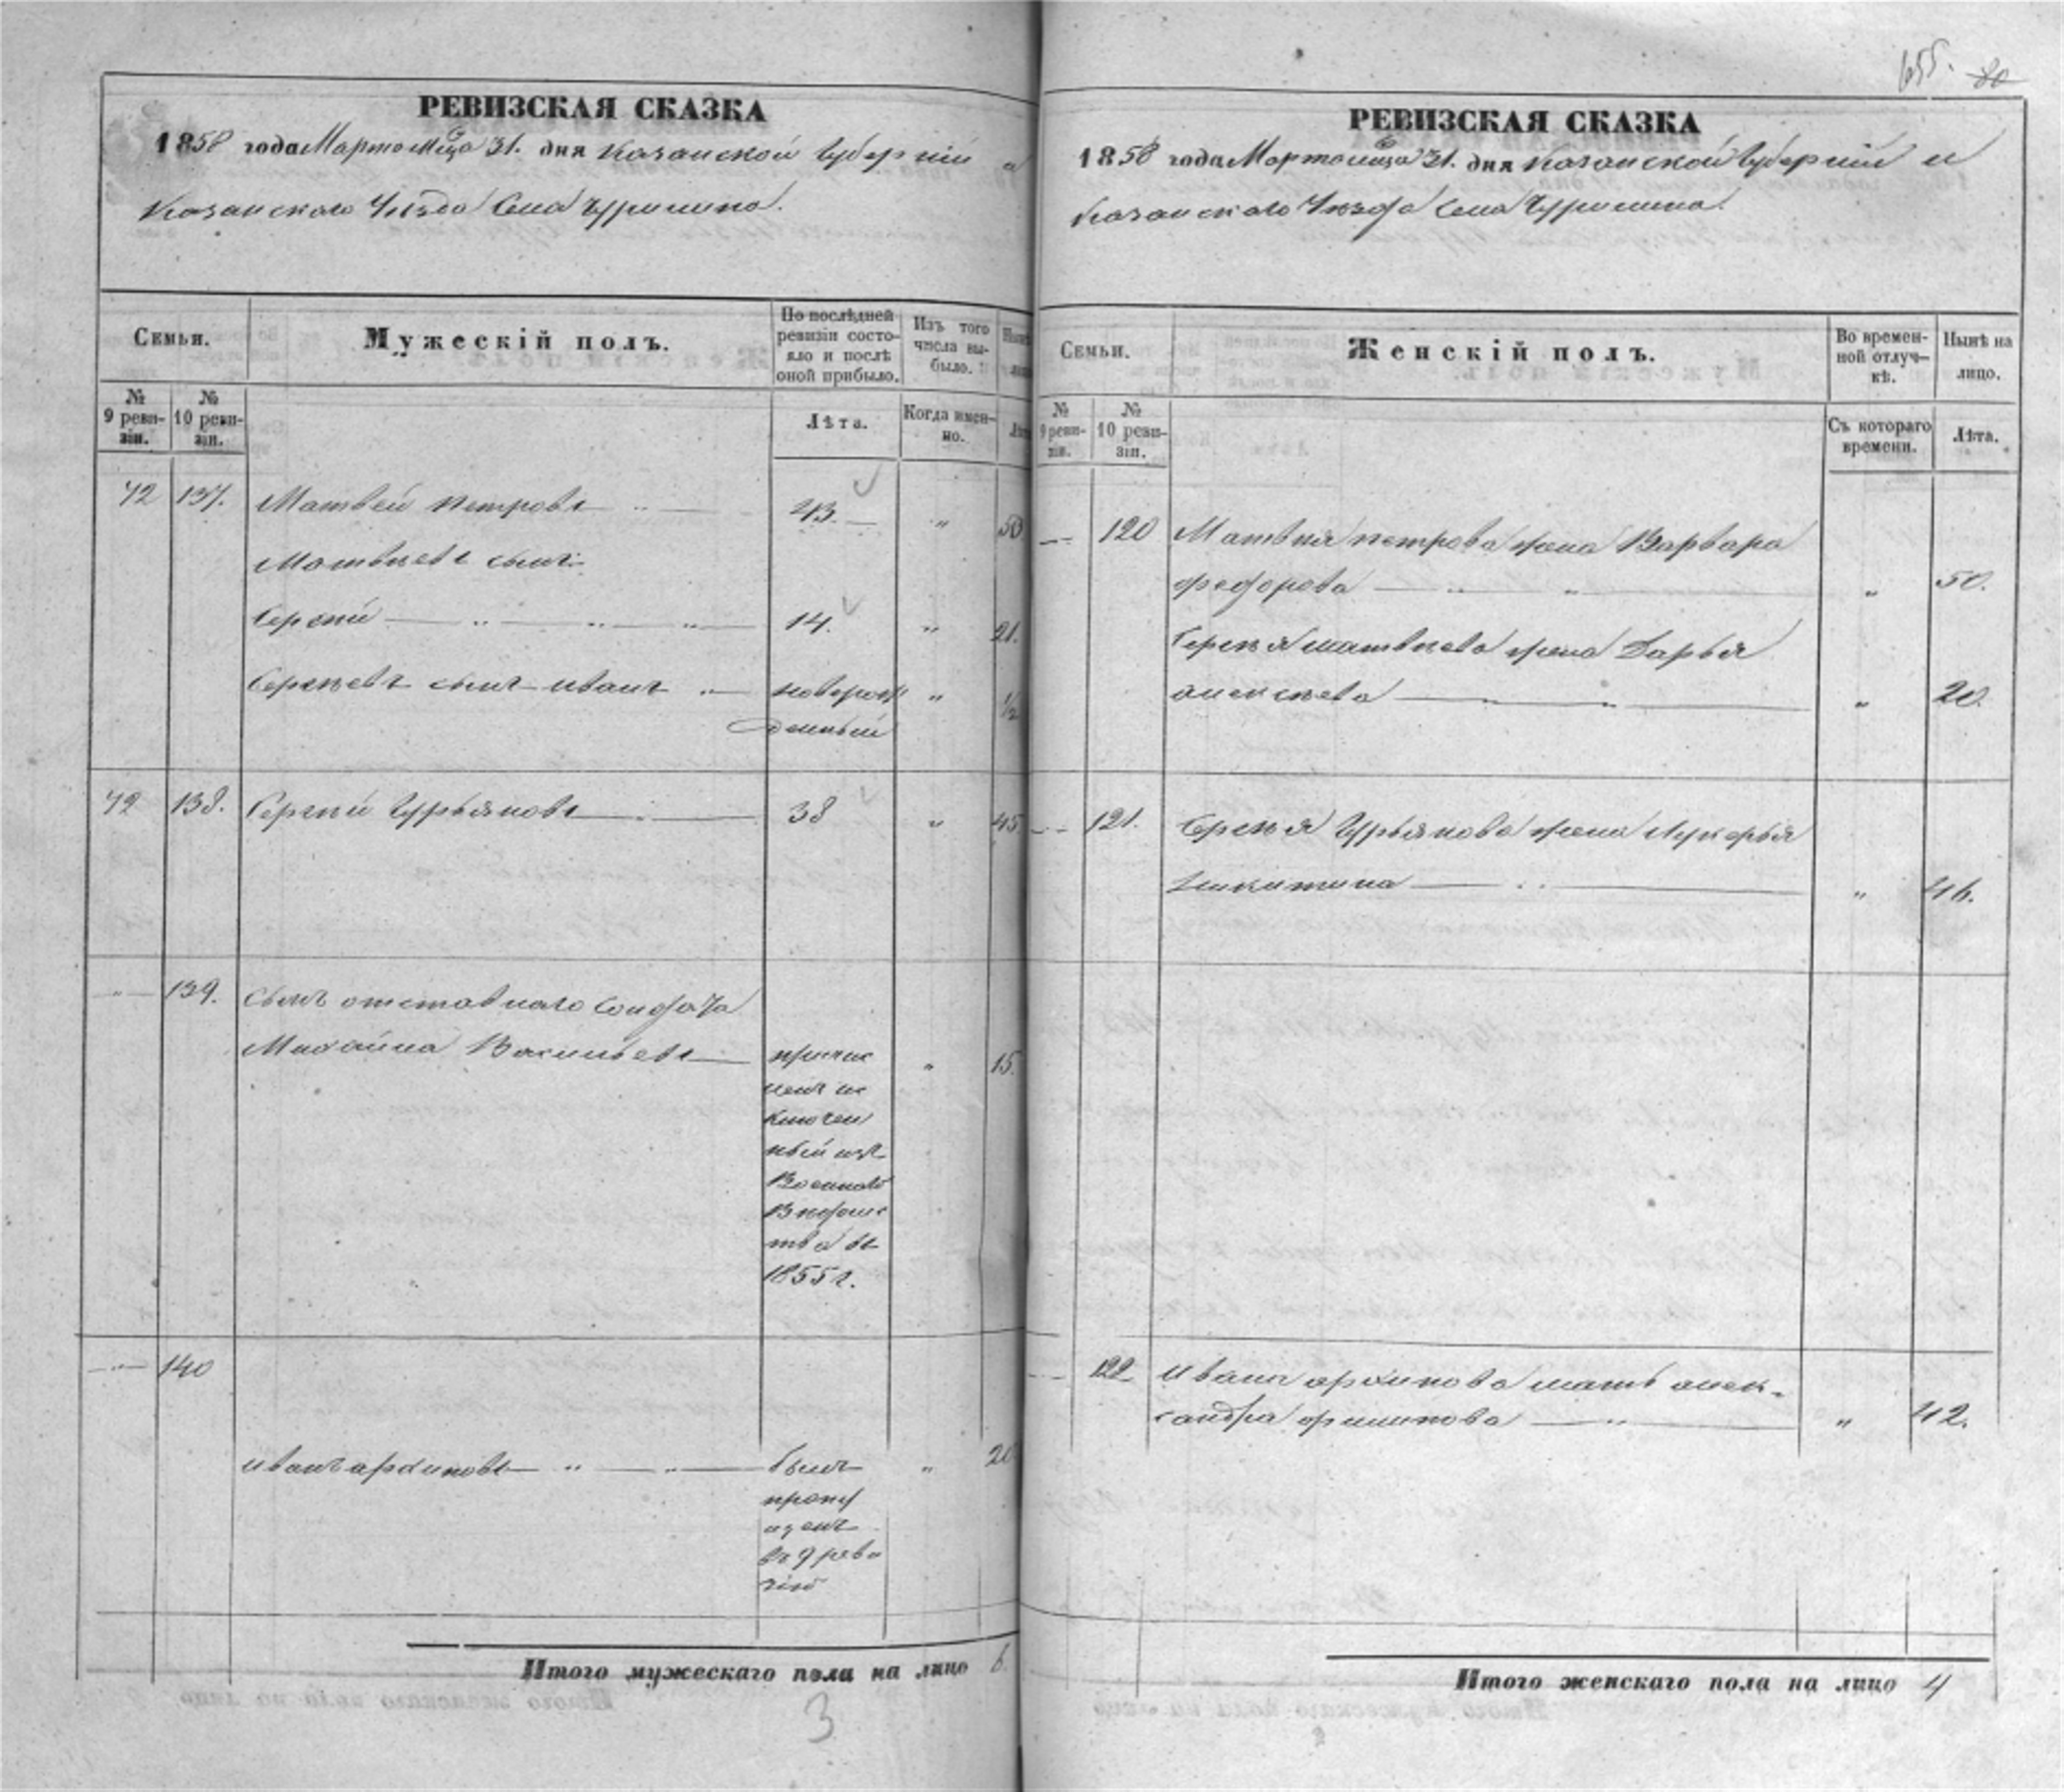 655. 80
РЕВИЗСКАЯ СКАЗКА
1858 года Марта Мца 31. дня Казанской Губерніи и
Казанскаго Уѣзда Села
Семьи.
Мужескій полъ.
По послѣдней ревизіи состояло и послѣ оной прибыло.
Изъ того числа выбыло.
№ 9 ревизіи.
№ 10 ревизіи.
Лѣта.
Когда именно.
72 137. Матвей Петровъ 43. " 50
Матвѣевъ сынъ
Сергѣй 14. " 21.
Сергѣевъ сынъ Иванъ новорож " 1/2
денный
72 138. Сергѣй Гурьяновъ 38 " 45
" 139. Сынъ отставнаго Солдата
Михайла Васильевъ причис " 15.
ленъ ис
ключен
ный изъ
Военнаго
Вѣдомс
тва въ
1855 г.
" 140
Иванъ Архиповъ былъ " 20
пропу
щенъ
въ 9 реви
зію
Итого мужескаго пола на лицо 6.
3
РЕВИЗСКАЯ СКАЗКА
1858 года Марта мца 31. дня Казанской Губерніи и
Казанскаго Уѣзда Села
Семьи.
Женскій полъ.
Во временной отлучкѣ.
Нынѣ на лицо.
№ 9 ревизіи.
№ 10 ревизіи.
Съ котораго времени.
Лѣта.
" 120 Матвѣя Петрова жена Варвара
Федорова " 50.
Сергѣя Матвѣева жена Дарья
Алексѣева " 20.
" 121. Сергѣя Гурьянова жена Лукерья
Никитина " 46.
" 122 Ивана Архипова мать Алек-
сандра Филипова " 42.
Итого женскаго пола на лицо 4